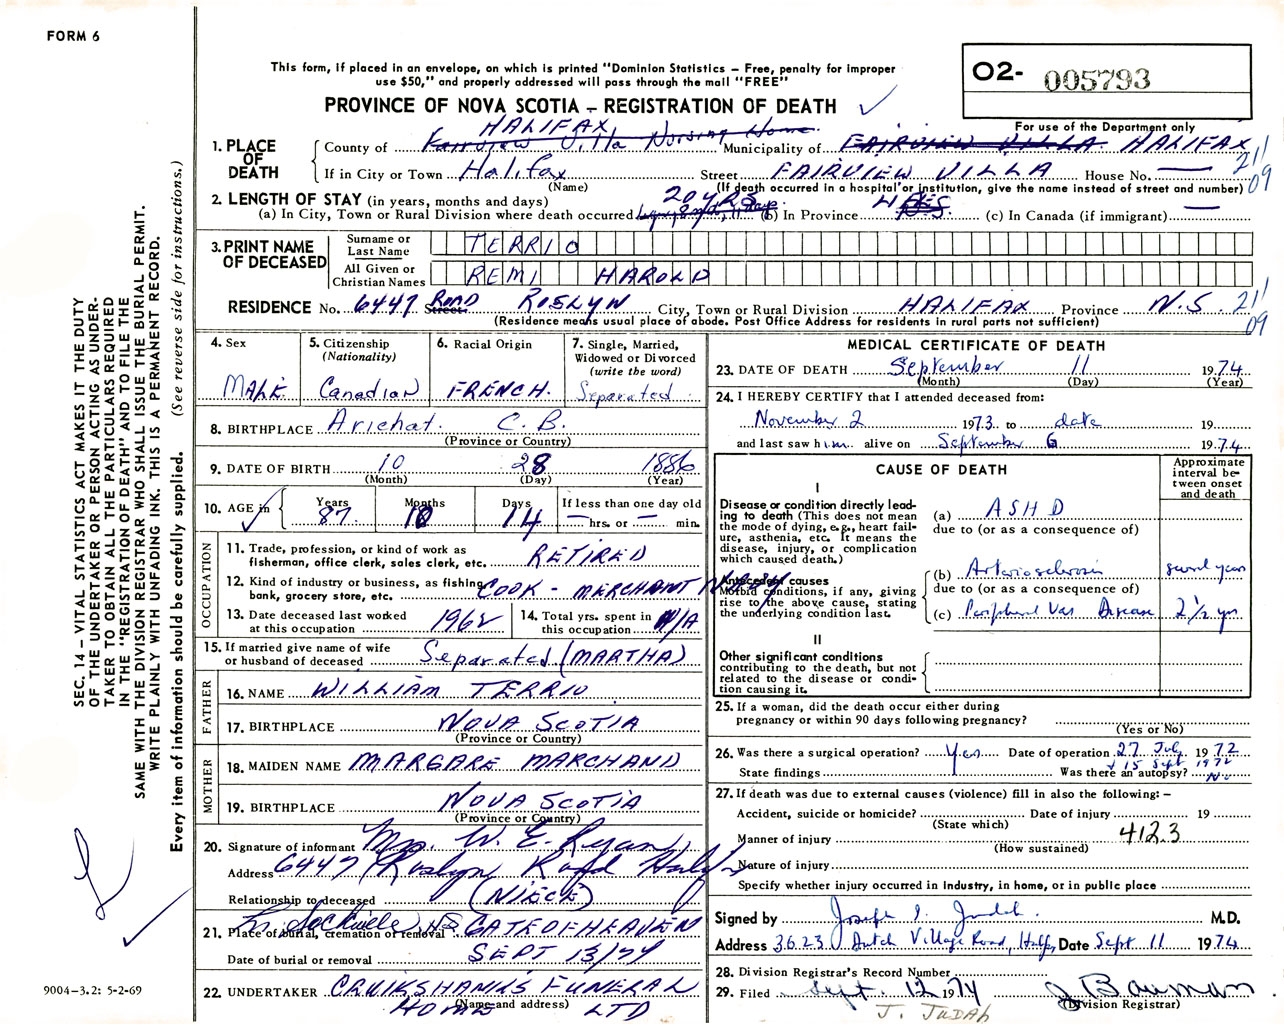 FORM 6
This form, if placed in an envelope, on which is printed "Dominion Statistics – Free, penalty for improper
use $50," and properly addressed will pass through the mail "FREE"
PROVINCE OF NOVA SCOTIA – REGISTRATION OF DEATH
O2- 005793
For use of the Department only
1. PLACE OF DEATH
County of HALIFAX Fairview Villa Nursing Home Municipality of FAIRVIEW VILLA HALIFAX
If in City or Town Halifax Street FAIRVIEW VILLA House No. —
(Name) (If death occurred in a hospital or institution, give the name instead of street and number)
211
09
2. LENGTH OF STAY (in years, months and days)
(a) In City, Town or Rural Division where death occurred 20 YRS (b) In Province LIFE (c) In Canada (if immigrant) —
3. PRINT NAME OF DECEASED
Surname or Last Name TERRIO
All Given or Christian Names REMI HAROLD
RESIDENCE No. 6447 Street ROAD ROSLYN City, Town or Rural Division HALIFAX Province N.S.
(Residence means usual place of abode. Post Office Address for residents in rural parts not sufficient)
211
09
4. Sex MALE
5. Citizenship (Nationality) Canadian
6. Racial Origin FRENCH.
7. Single, Married, Widowed or Divorced (write the word) Separated
8. BIRTHPLACE Arichat. C.B.
(Province or Country)
9. DATE OF BIRTH 10 28 1886
(Month) (Day) (Year)
10. AGE in Years 87 Months 10 Days 14 If less than one day old — hrs. or — min.
OCCUPATION
11. Trade, profession, or kind of work as fisherman, office clerk, sales clerk, etc. RETIRED
12. Kind of industry or business, as fishing, bank, grocery store, etc. COOK - MERCHANT NAVY
13. Date deceased last worked at this occupation 1962
14. Total yrs. spent in this occupation N/A
15. If married give name of wife or husband of deceased Separated (MARTHA)
FATHER
16. NAME WILLIAM TERRIO
17. BIRTHPLACE NOVA SCOTIA
(Province or Country)
MOTHER
18. MAIDEN NAME MARGARE MARCHAND
19. BIRTHPLACE NOVA SCOTIA
(Province or Country)
20. Signature of informant Mrs. W. E. Ryan
Address 6447 Roslyn Road Halifax
Relationship to deceased (NIECE)
21. Place of burial, cremation or removal Lr. Sackville NS GATE OF HEAVEN
Date of burial or removal SEPT 13/74
22. UNDERTAKER CRUIKSHANKS FUNERAL
HOME LTD
(Name and address)
MEDICAL CERTIFICATE OF DEATH
23. DATE OF DEATH September 11 1974
(Month) (Day) (Year)
24. I HEREBY CERTIFY that I attended deceased from:
November 2 1973 to date 19
and last saw him alive on September 6 1974
CAUSE OF DEATH
Approximate interval between onset and death
I
Disease or condition directly leading to death (This does not mean the mode of dying, e.g., heart failure, asthenia, etc. It means the disease, injury, or complication which caused death.)
(a) ASHD
due to (or as a consequence of)
Antecedent causes
Morbid conditions, if any, giving rise to the above cause, stating the underlying condition last.
(b) Arteriosclerosis several years
due to (or as a consequence of)
(c) Peripheral Vas Disease 2 1/2 yrs
II
Other significant conditions
contributing to the death, but not related to the disease or condition causing it.
25. If a woman, did the death occur either during pregnancy or within 90 days following pregnancy?
(Yes or No)
26. Was there a surgical operation? Yes Date of operation 27 July 1972
& 15 Sept 1972
State findings Was there an autopsy? No
27. If death was due to external causes (violence) fill in also the following: –
Accident, suicide or homicide? Date of injury 19
(State which)
Manner of injury 412.3
(How sustained)
Nature of injury
Specify whether injury occurred in Industry, in home, or in public place
Signed by Joseph I. Judah. M.D.
Address 3623 Dutch Village Road, Halifax Date Sept 11 1974
28. Division Registrar's Record Number
29. Filed Sept. 12 1974 J Bowman
(Division Registrar)
J. JUDAH
SEC. 14 – VITAL STATISTICS ACT MAKES IT THE DUTY
OF THE UNDERTAKER OR PERSON ACTING AS UNDER-
TAKER TO OBTAIN ALL THE PARTICULARS REQUIRED
IN THE "REGISTRATION OF DEATH" AND TO FILE THE
SAME WITH THE DIVISION REGISTRAR WHO SHALL ISSUE THE BURIAL PERMIT.
WRITE PLAINLY WITH UNFADING INK. THIS IS A PERMANENT RECORD.
Every item of information should be carefully supplied. (See reverse side for instructions.)
9004-3.2: 5-2-69